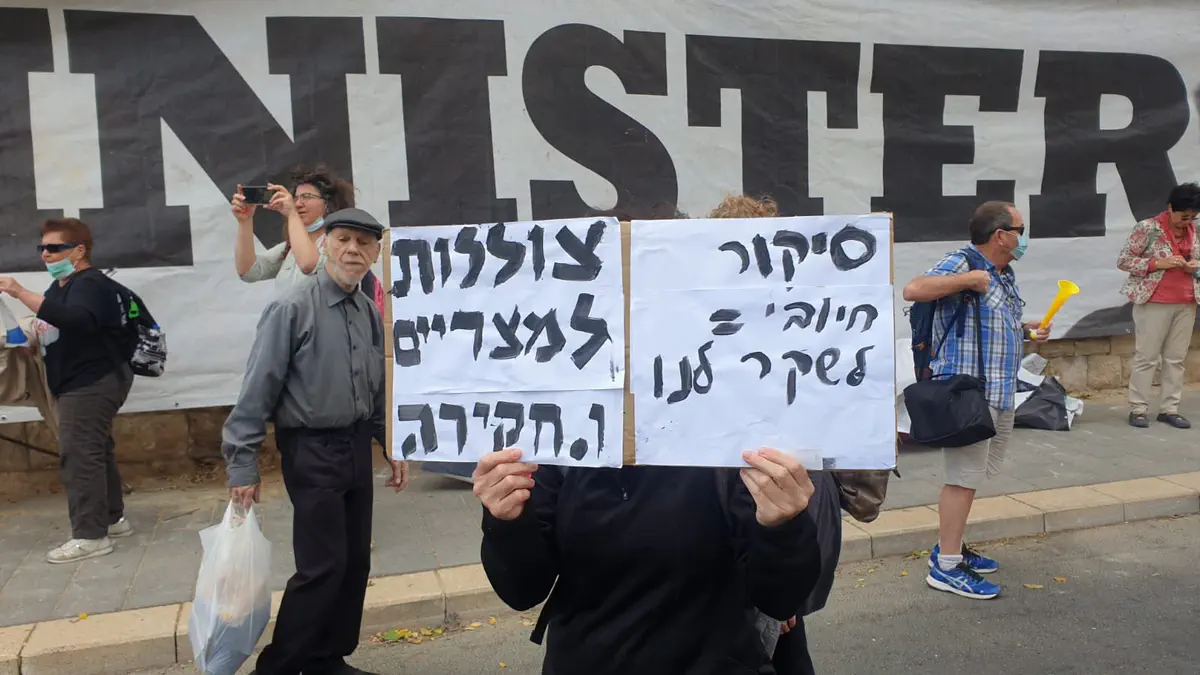 INISTER
סיקור
חיובי =
לשקר לנו
צוללות
למצריים
ו.חקירה.